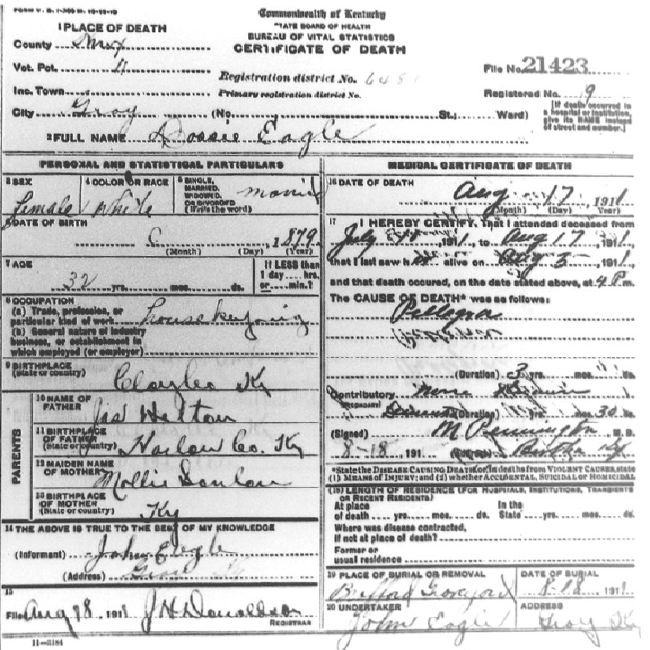 Commonwealth of Kentucky
STATE BOARD OF HEALTH
BUREAU OF VITAL STATISTICS
CERTIFICATE OF DEATH
1 PLACE OF DEATH
County
Vot. Pct.
Registration district No.
File No. 21423
Inc. Town
Primary registration district No.
Registered No. 9
City Gray (No. St.; Ward)
[If death occurred in a hospital or institution, give its NAME instead of street and number.]
2 FULL NAME Eagle
PERSONAL AND STATISTICAL PARTICULARS
3 SEX
Female
4 COLOR OR RACE
White
5 SINGLE, MARRIED, WIDOWED, OR DIVORCED (Write the word)
6 DATE OF BIRTH
1879
(Month) (Day) (Year)
7 AGE
32 yrs. mos. ds.
If LESS than 1 day.... hrs. or..... min.?
8 OCCUPATION
(a) Trade, profession, or particular kind of work
(b) General nature of industry business, or establishment in which employed (or employer)
9 BIRTHPLACE
(State or country)
Clay Co Ky
PARENTS
10 NAME OF FATHER
Helton
11 BIRTHPLACE OF FATHER
(State or country)
Harlan Co. Ky
12 MAIDEN NAME OF MOTHER
Mollie
13 BIRTHPLACE OF MOTHER
(State or country)
Ky
14 THE ABOVE IS TRUE TO THE BEST OF MY KNOWLEDGE
(Informant) John Eagle
(Address)
15
Filed Aug 28 1911 J H Donaldson
REGISTRAR
11-3184
MEDICAL CERTIFICATE OF DEATH
16 DATE OF DEATH
Aug 17 1911
(Month) (Day) (Year)
17 I HEREBY CERTIFY, That I attended deceased from
July 1911, to Aug 17 1911
that I last saw alive on Aug 5 1911
and that death occured, on the date stated above, at 4 P.m.
The CAUSE OF DEATH* was as follows:
Pellegra
(Duration) 3 yrs. mos. ds.
Contributory
(Duration) yrs. mos. 30 ds.
(Signed) M Pennington M. D.
8-18 191
*State the DISEASE CAUSING DEATH, or, in deaths from VIOLENT CAUSES, state (1) MEANS OF INJURY; and (2) whether ACCIDENTAL, SUICIDAL OR HOMICIDAL
18 LENGTH OF RESIDENCE (FOR HOSPITALS, INSTITUTIONS, TRANSIENTS OR RECENT RESIDENTS)
At place of death yrs. mos. ds. In the State yrs. mos. ds.
Where was disease contracted, if not at place of death?
Former or usual residence
19 PLACE OF BURIAL OR REMOVAL
DATE OF BURIAL
8-18 1911
20 UNDERTAKER
John Eagle
ADDRESS
Gray Ky